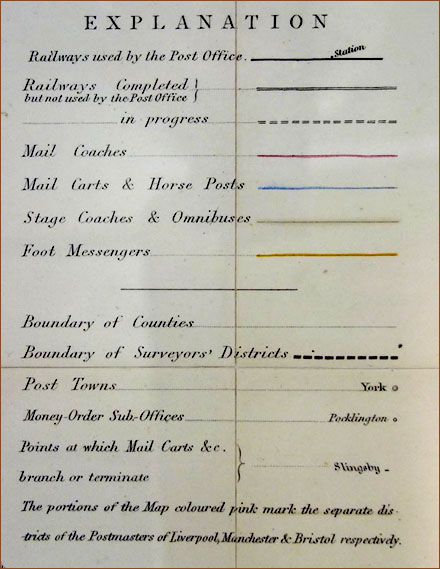 EXPLANATION
Railways used by the Post Office. Station
Railways Completed
but not used by the Post Office
in progress
Mail Coaches
Mail Carts & Horse Posts
Stage Coaches & Omnibuses
Foot Messengers
Boundary of Counties
Boundary of Surveyors' Districts
Post Towns York
Money-Order Sub-Offices Pocklington
Points at which Mail Carts &c.
branch or terminate Slingsby
The portions of the Map coloured pink mark the separate dis-
tricts of the Postmasters of Liverpool, Manchester & Bristol respectively.